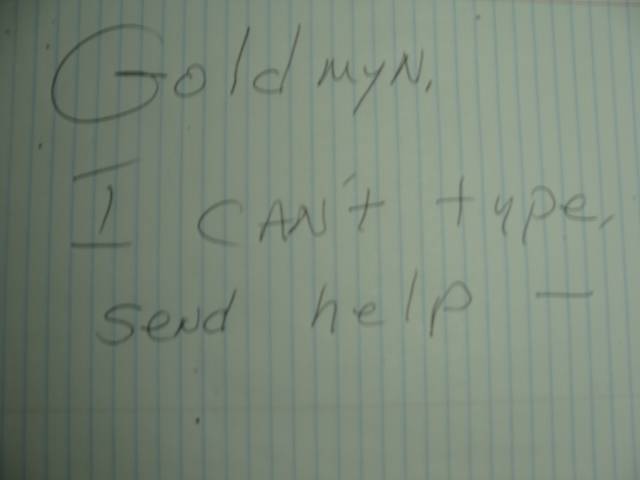 Goldmyn,
I CAN't type,
Send help -